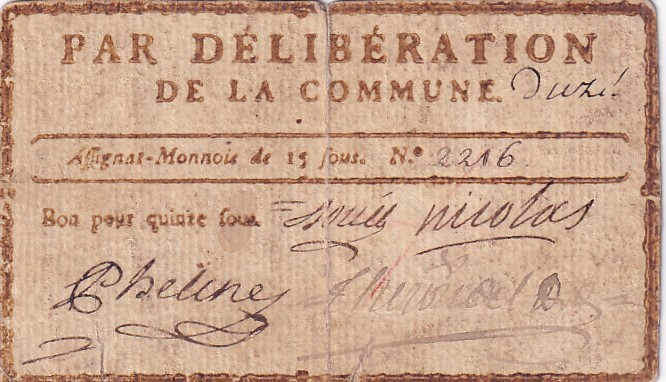 PAR DÉLIBÉRATION
DE LA COMMUNE.
Aſſignat-Monnoie de 15 ſous. N.º 2216
Bon pour quinze ſous. nicolas